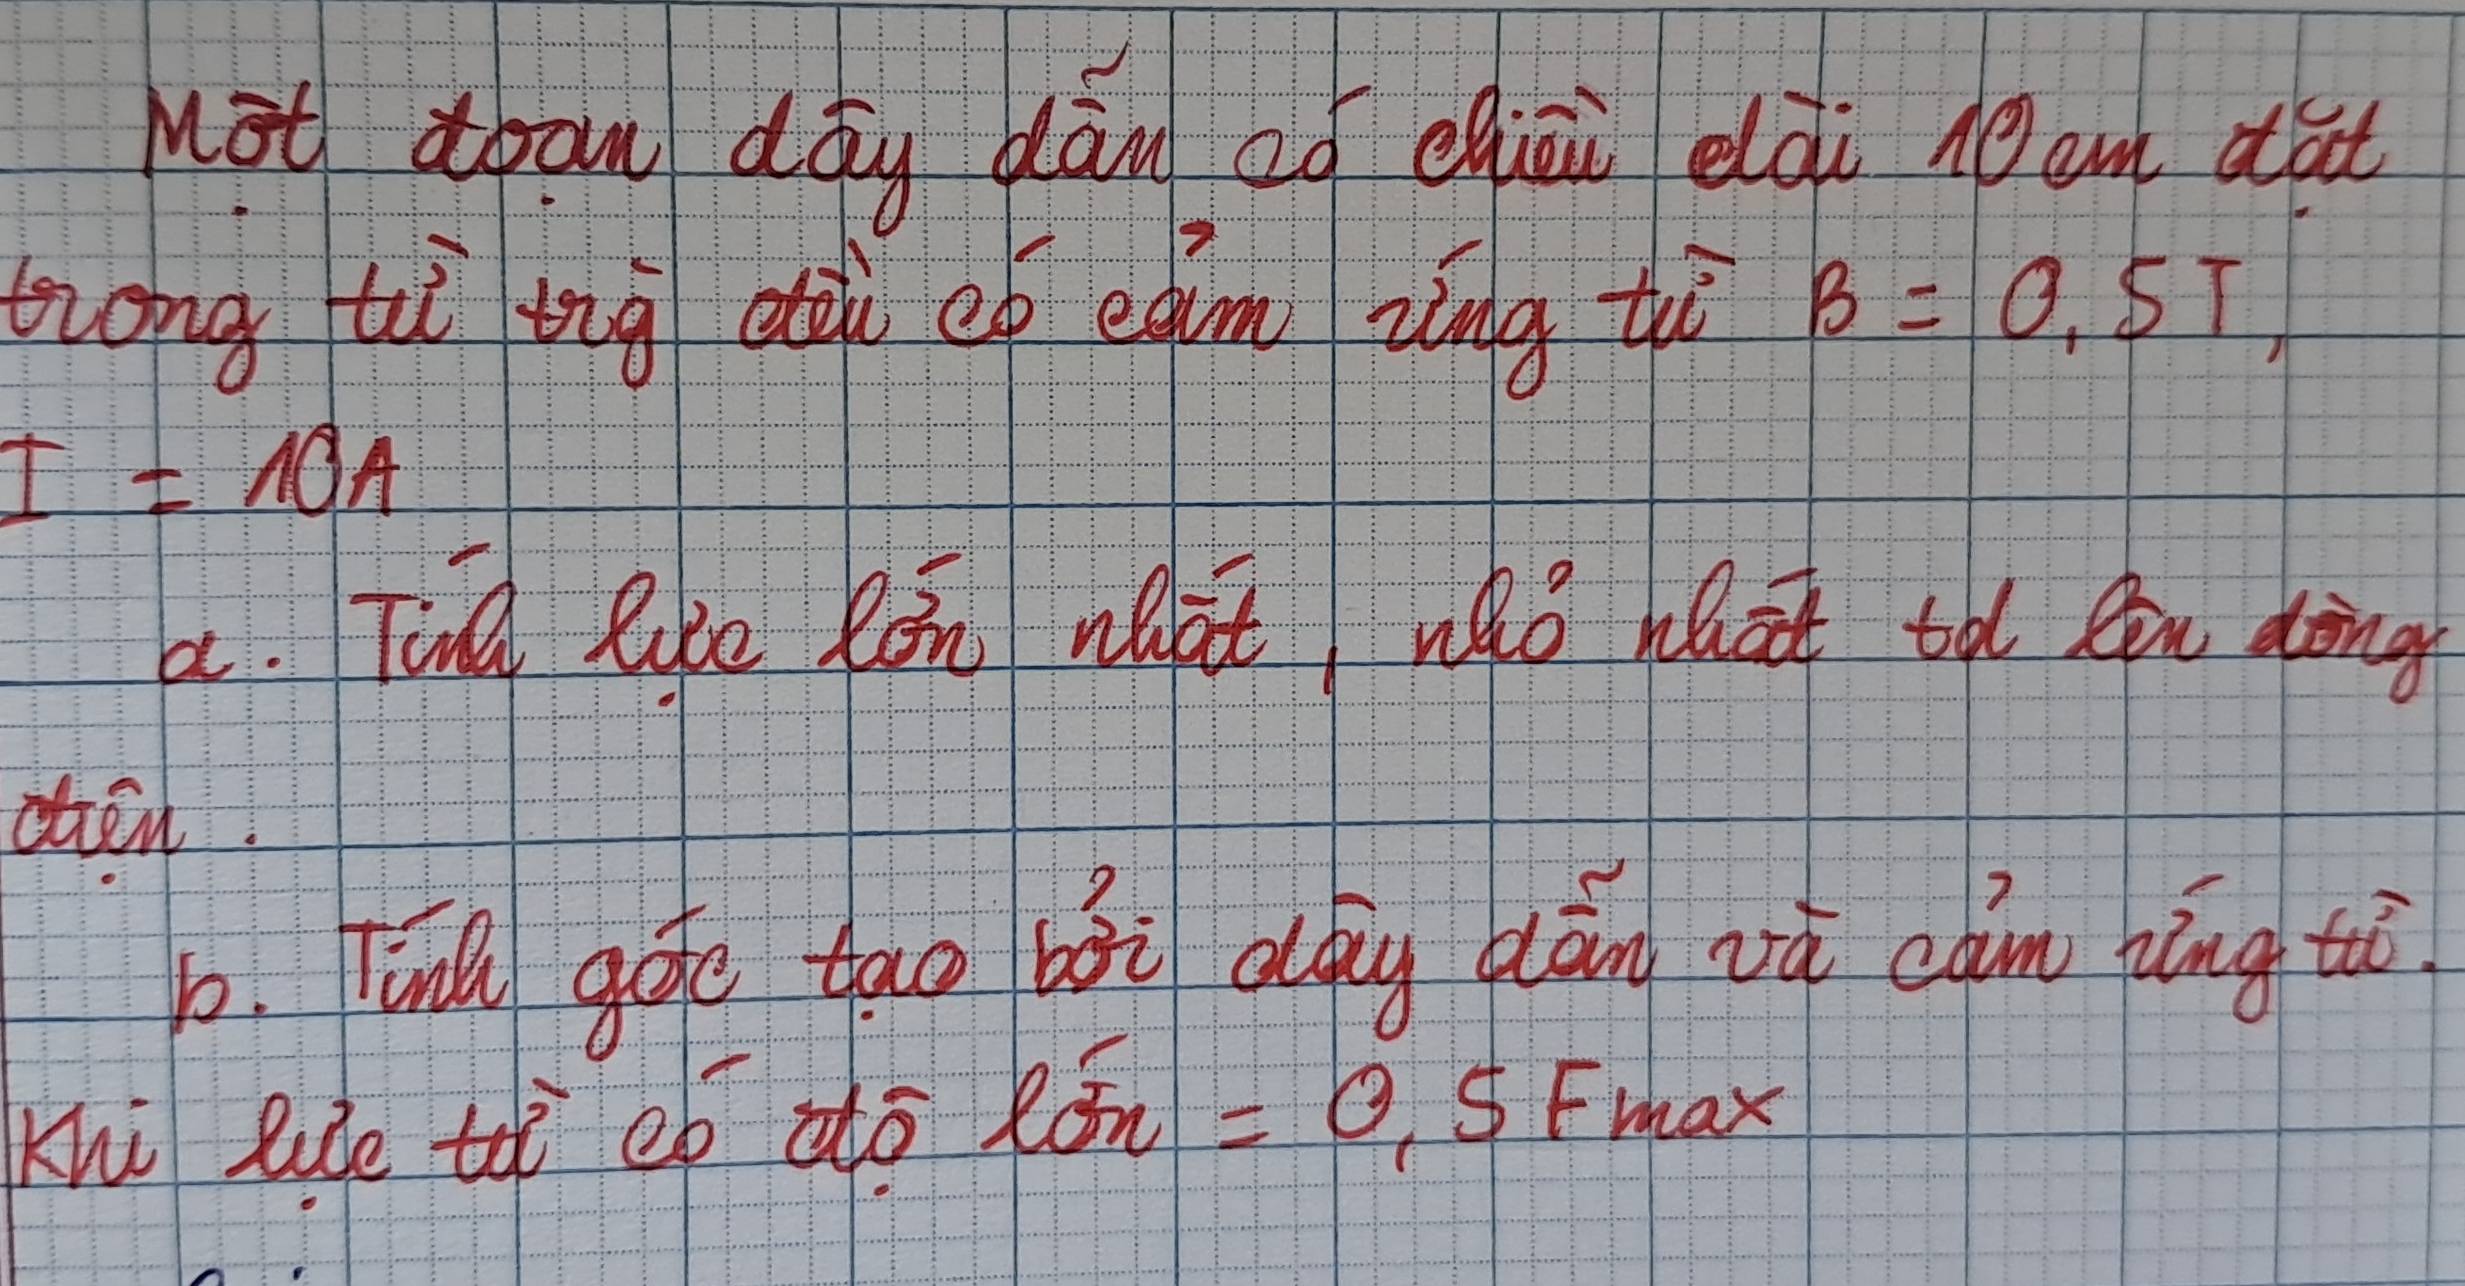 Một đoạn dây dẫn có chiều dài 10 cm đặt
trong từ trg̀ đều có cảm ứng từ B = 0,5T,
I = 10A
a. Tính lực lớn nhất, nhỏ nhất td lên dòng
điện.
b. Tính góc tạo bởi dây dẫn và cảm ứng từ.
Khi lực từ có độ lớn = 0,5 Fmax